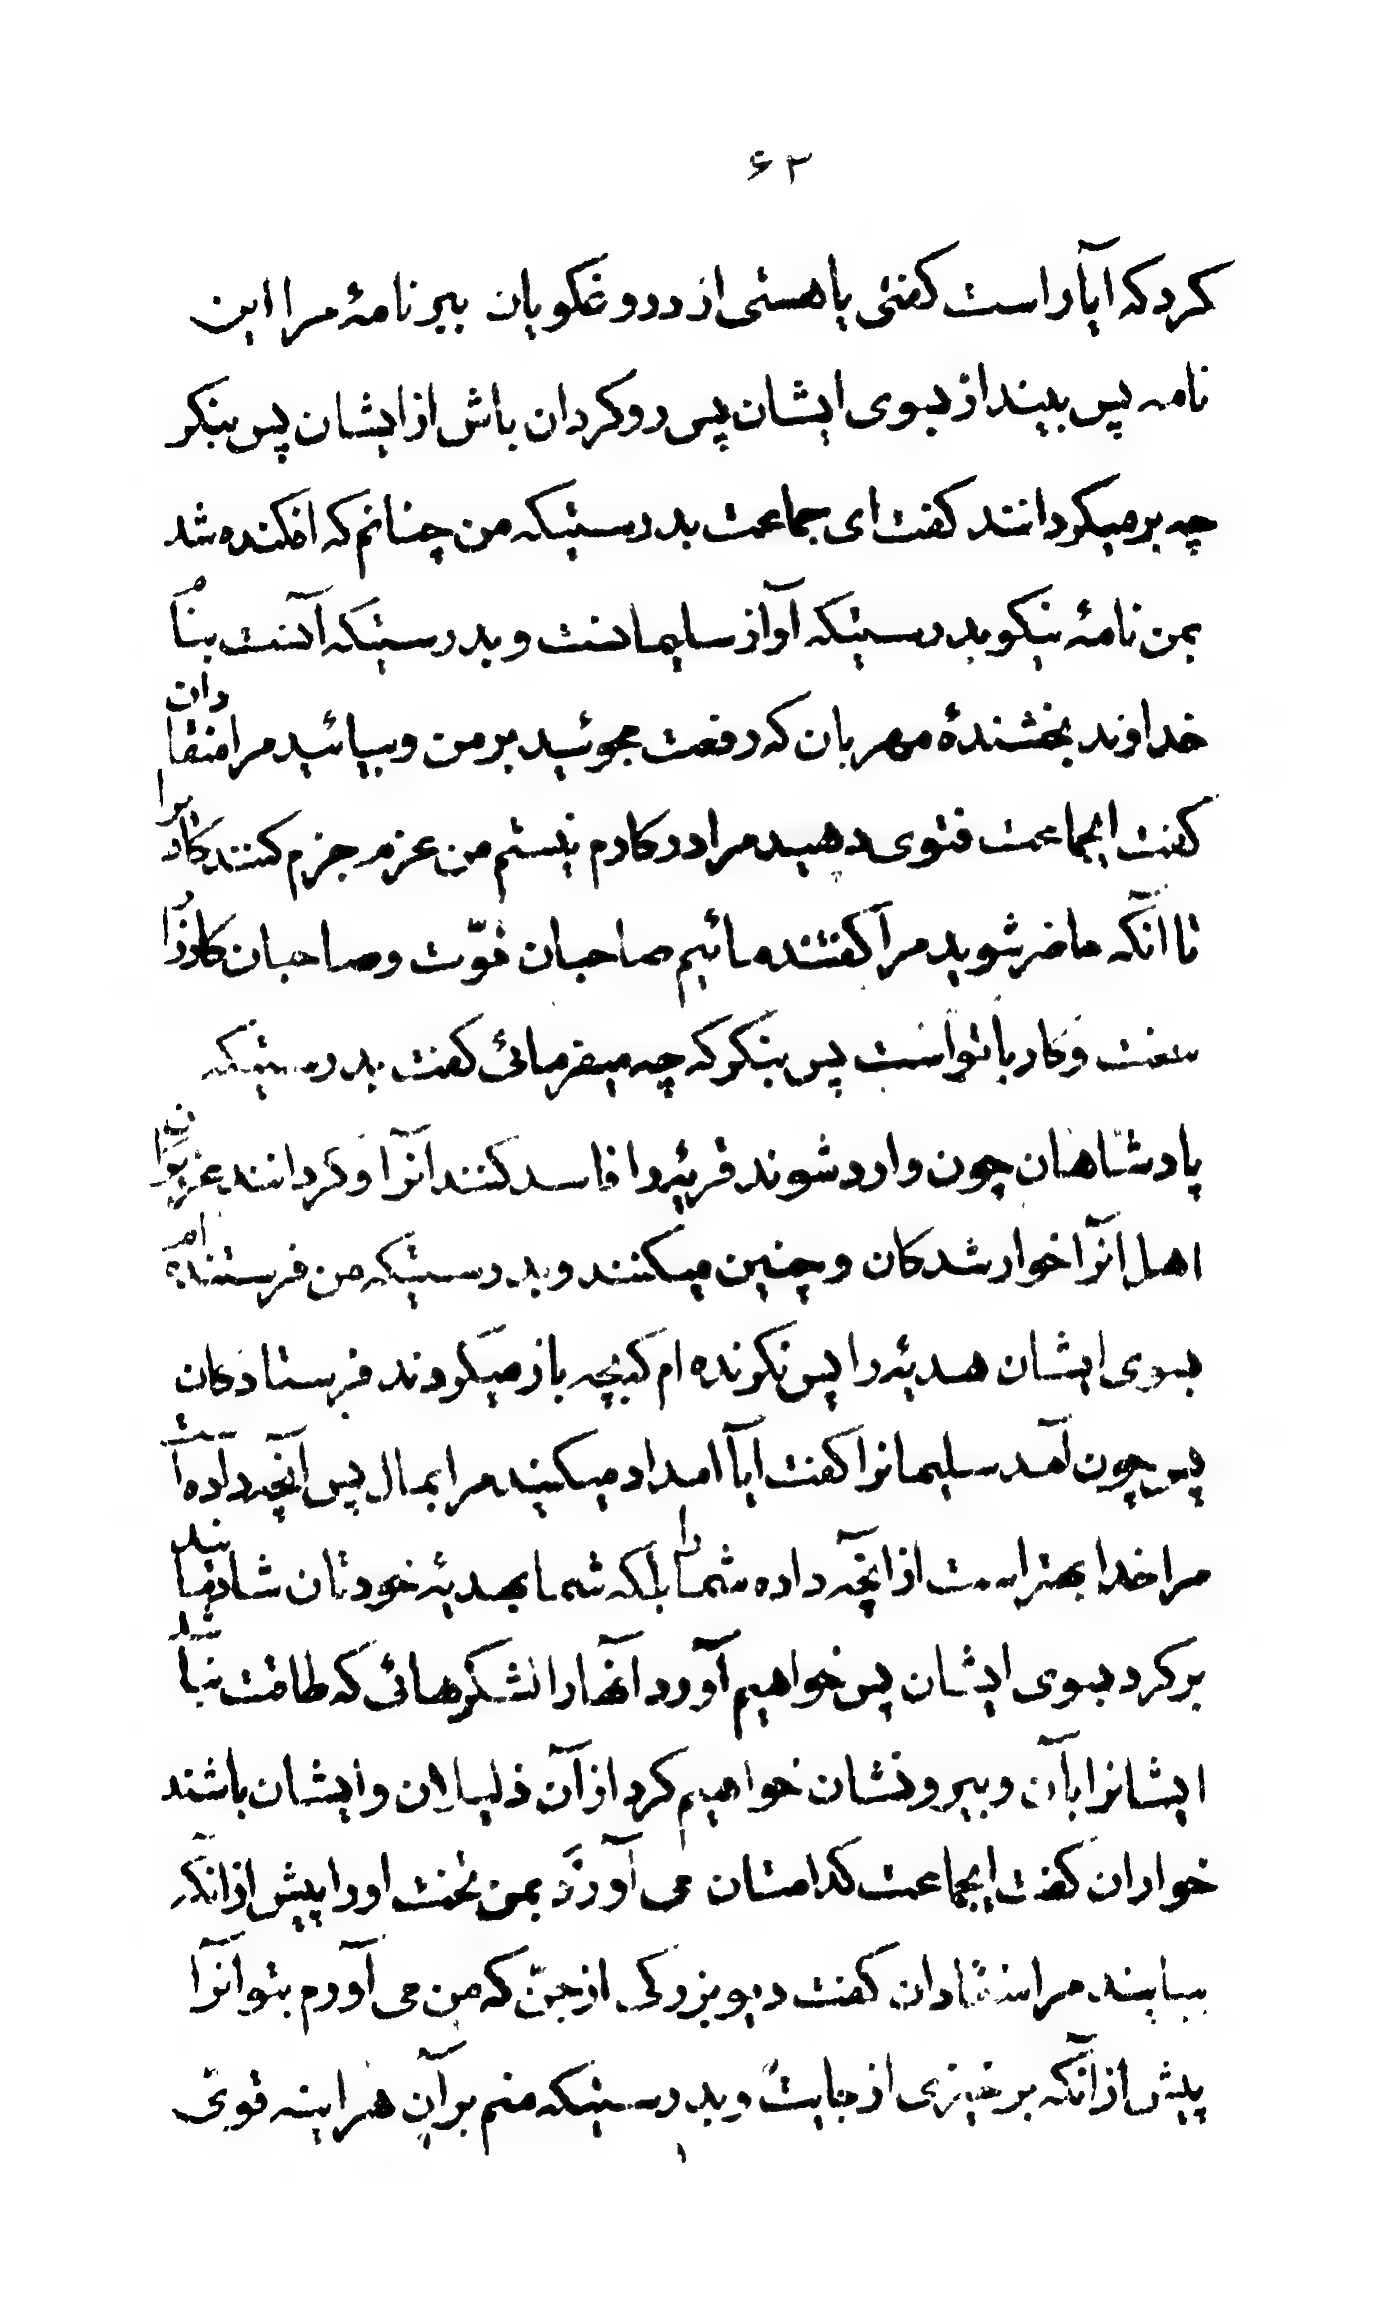 ۶۲
کرد که ایا راست کفتی یا هستی از دروغکویان ببر نامهٔ مرا این
نامه پس بینداز بسوی ایشان پس رو کردان باش از ایشان پس بنکر
چه برمیکردانند کفت ای جماعت بدرستیکه من چنانم که افکنده شد
بمن نامهٔ نیکو بدرستیکه آواز سلیمانست و بدرستیکه آنست بنام
خداوند بخشندهٔ مهربان که رفعت مجوئید بر من و بیائید مرا منقادان
کفت ایجماعت فتوی دهید مرا در کارم نیستم من عزم جزم کنند کاریرا
تا آنکه حاضر شوید مرا کفتند مائیم صاحبان قوّت و صاحبان کارزار
سخت و کار با تواست پس بنکر که چه میفرمائی کفت بدرستیکه
پادشاهان چون وارد شوند قریهٔ را فاسد کنند آنرا و کردانند عزیزانرا
اهل آنرا خوار شدکان و چنین میکنند و بدرستیکه من فرستنده ام
بسوی ایشان هدیهٔ را پس نکرنده ام که بچه باز میکردند فرستادکان
پس چون آمد سلیمانرا کفت ایا امداد میکنید مرا بمال پس آنچه داده است
مرا خدا بهتر است از آنچه داده شما را بلکه شما بهدیهٔ خودتان شادمانید
برکرد بسوی ایشان پس خواهیم آورد آنهارا لشکرهائی که طاقت نباشد
ایشانرا بآن و بیرونشان خواهیم کرد از آن ذلیلان و ایشان باشند
خواران کفت ایجماعت کدامتان می آورد بمن تخت اورا پیش از آنکه
بیایند مرا منقادان کفت دیو بزرکی از جنّ که من می آورم بتو آنرا
پیش از آنکه برخیزی از جایت و بدرستیکه منم بر آن هراینه قوی